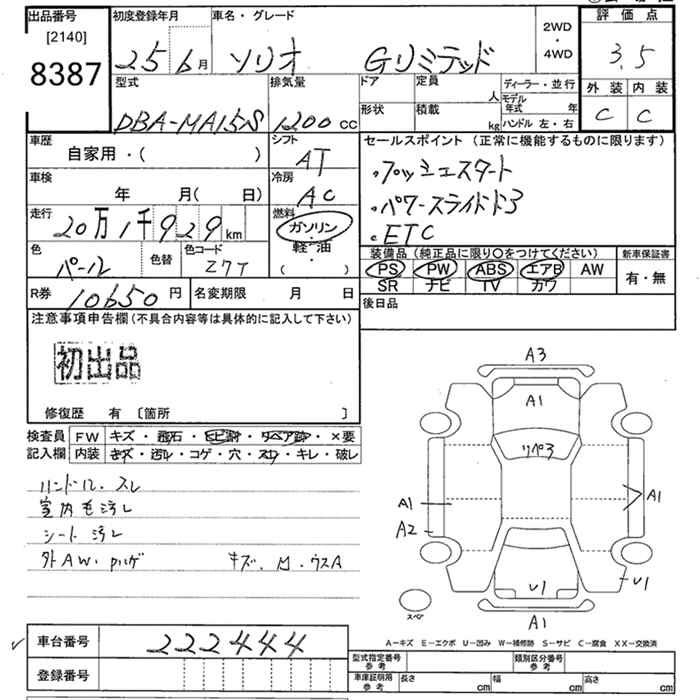 出品番号 初度登録年月 車名・グレード 2WD・4WD 評価点
[2140]
8387
25 6月 ソリオ Gリミテッド 3.5
型式 排気量 ドア 定員 人 ディーラー・並行 外装 内装
DBA-MA15S 1200cc 形状 積載 kg モデル年式 年 ハンドル 左・右 C C
車歴 シフト セールスポイント (正常に機能するものに限ります)
自家用・( ) AT
・プッシュスタート
車検 冷房
年 月( 日) AC
・パワースライドド3
走行 燃料
20万1千929km ガソリン・軽油・( )
・ETC
色 色替 色コード
パール Z7T
装備品 (純正品に限り○をつけてください) 新車保証書
PS PW ABS エアB AW 有・無
SR ナビ TV カワ
R券 10650円 名変期限 月 日
後日品
注意事項申告欄(不具合内容等は具体的に記入して下さい)
初出品
修復歴 有 [箇所 ]
検査員 FW キズ・飛石・ヒビ割・リペア跡・×要
記入欄 内装 キズ・汚レ・コゲ・穴・スレ・キレ・破レ
ハンドル、スレ
室内毛汚レ
シート汚レ
外AW、ハゲ キズ、M、ウスA
A3
A1
リペ3
A1
A1
A2
U1
U1
スペア
A1
A-キズ E-エクボ U-凹み W-補修跡 S-サビ C-腐食 XX-交換済
車台番号 222444
登録番号
型式指定番号 参考 類別区分番号 参考
車庫証明用 参考 長さ cm 幅 cm 高さ cm